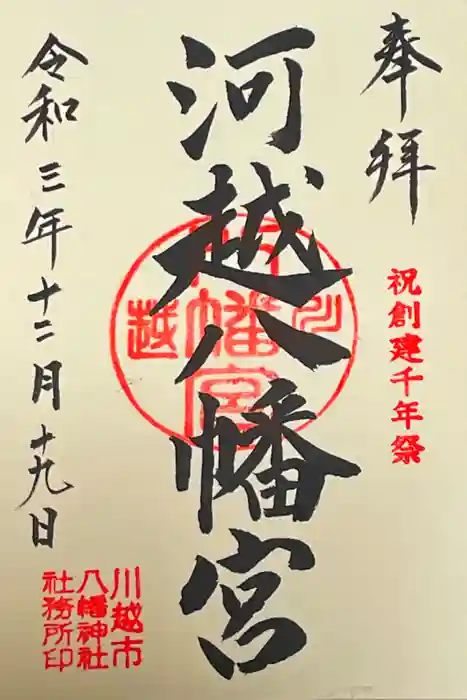 奉拝
祝創建千年祭
河越八幡宮
川越八幡宮
令和三年十二月十九日
川越市
八幡神社
社務所印